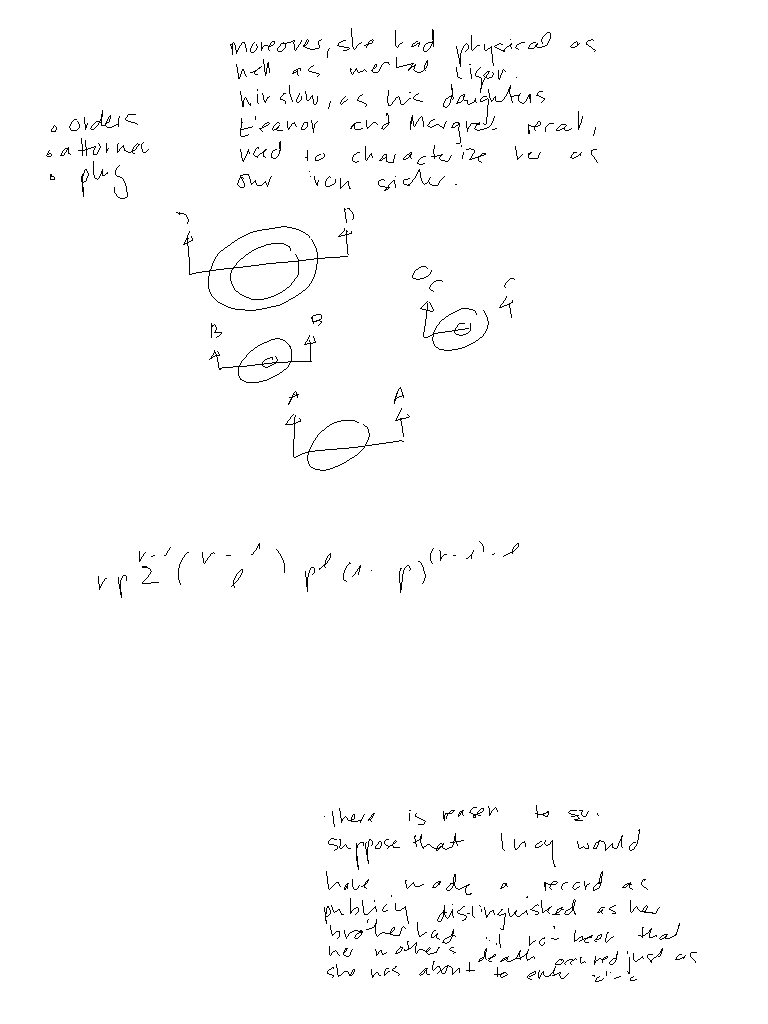 moreover, she had physical as
well as mental vigor.
Winslow, as his daughters
Eleanor and Margret recall,
used to characterize her as
our iron sister.
• orders
• attorney
• plug
D D
C C
B B
A A
r p Σ^{r-1} ( r-1 \atop l ) p^l (1-p)^{(r-1)-l}
There is reason to su-
suppose that Lucy would
have made a record as
publicly distinguished as her
brother had it not been that
her mother's death occured just as
she was about to enter